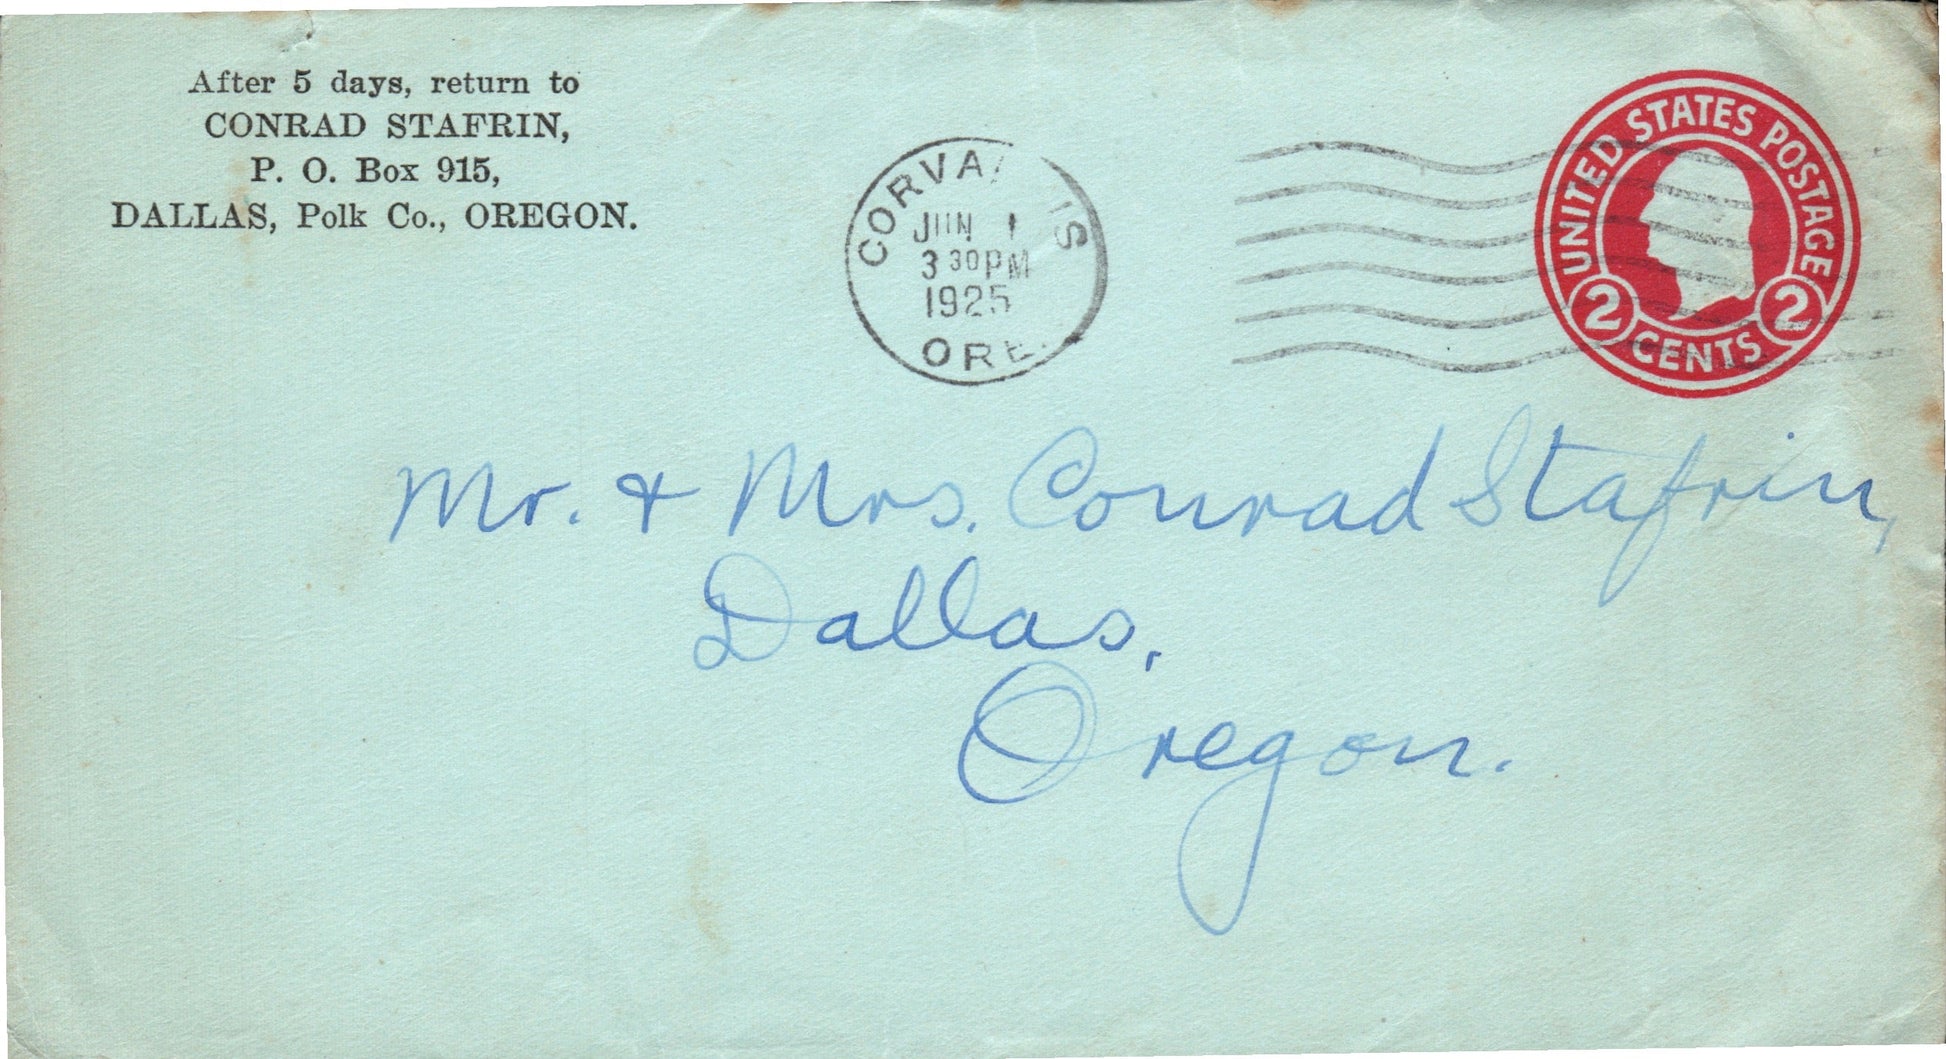 After 5 days, return to
CONRAD STAFRIN,
P. O. Box 915,
DALLAS, Polk Co., OREGON.
CORVA IS
JUN 1
3 30 PM
1925
ORE.
UNITED STATES POSTAGE
2 CENTS 2
Mr. & Mrs. Conrad Stafrin,
Dallas,
Oregon.